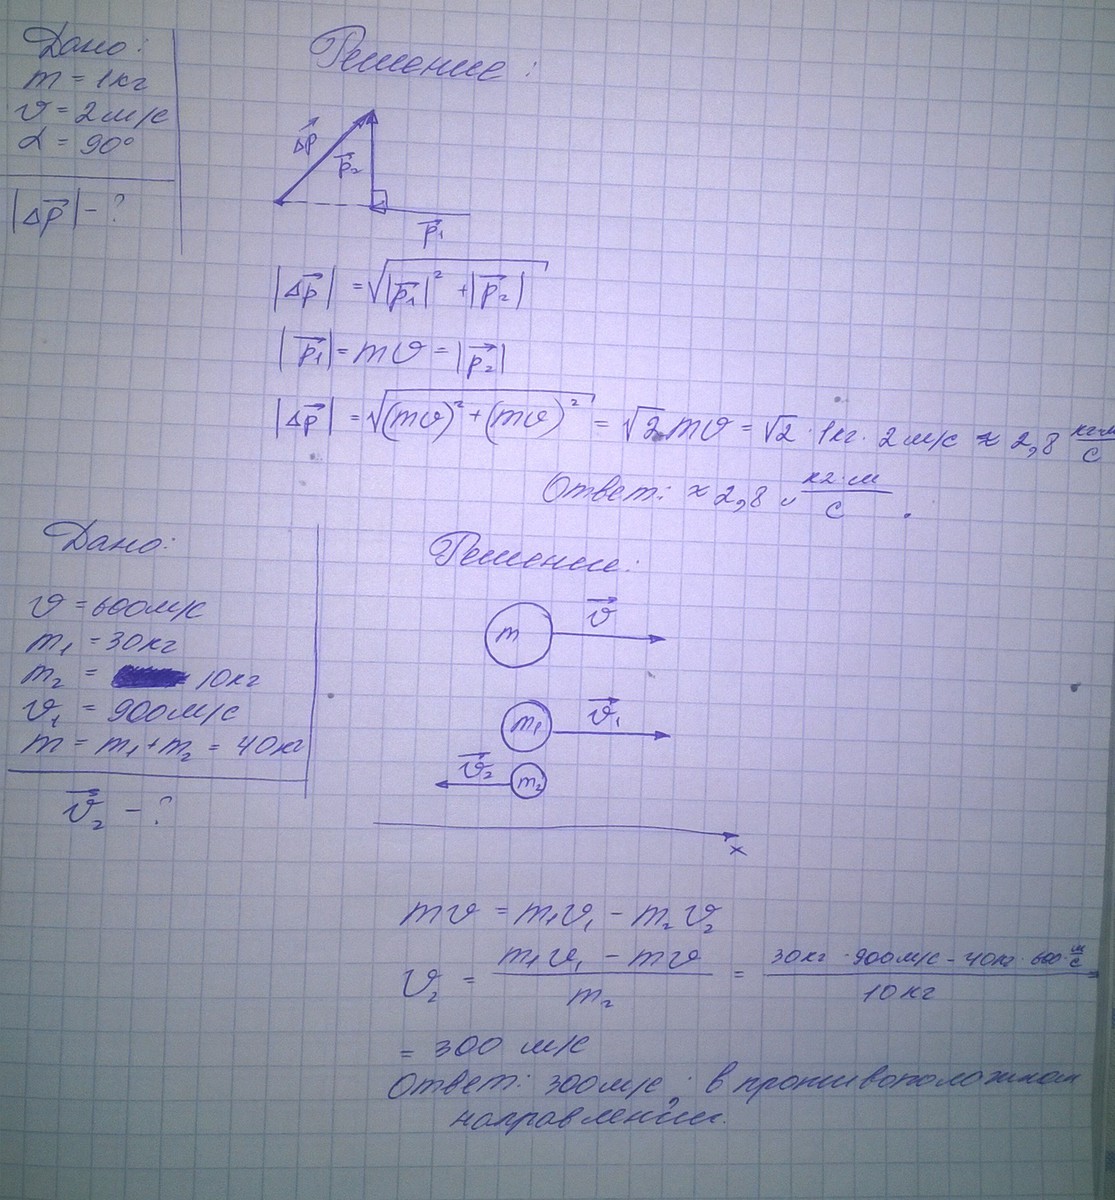 Дано:
m = 1кг
υ = 2м/с
α = 90°
|Δp⃗| - ?
Решение:
Δp⃗
p⃗₂
p⃗₁
|Δp⃗| = √(|p⃗₁|² + |p⃗₂|)
|p⃗₁| = mυ = |p⃗₂|
|Δp⃗| = √((mυ)² + (mυ)²) = √2 mυ = √2 · 1кг · 2м/с ≈ 2,8 кг·м/с
Ответ: ≈ 2,8 кг·м/с.
Дано:
υ = 600м/с
m₁ = 30кг
m₂ = 10кг
υ₁ = 900м/с
m = m₁ + m₂ = 40кг
υ⃗₂ - ?
Решение:
m υ⃗
m₁ υ⃗₁
υ⃗₂ m₂
x
mυ = m₁υ₁ - m₂υ₂
υ₂ = (m₁υ₁ - mυ)/m₂ = (30кг · 900м/с - 40кг · 600 м/с)/10кг =
= 300 м/с
Ответ: 300м/с; в противоположном
направлении.